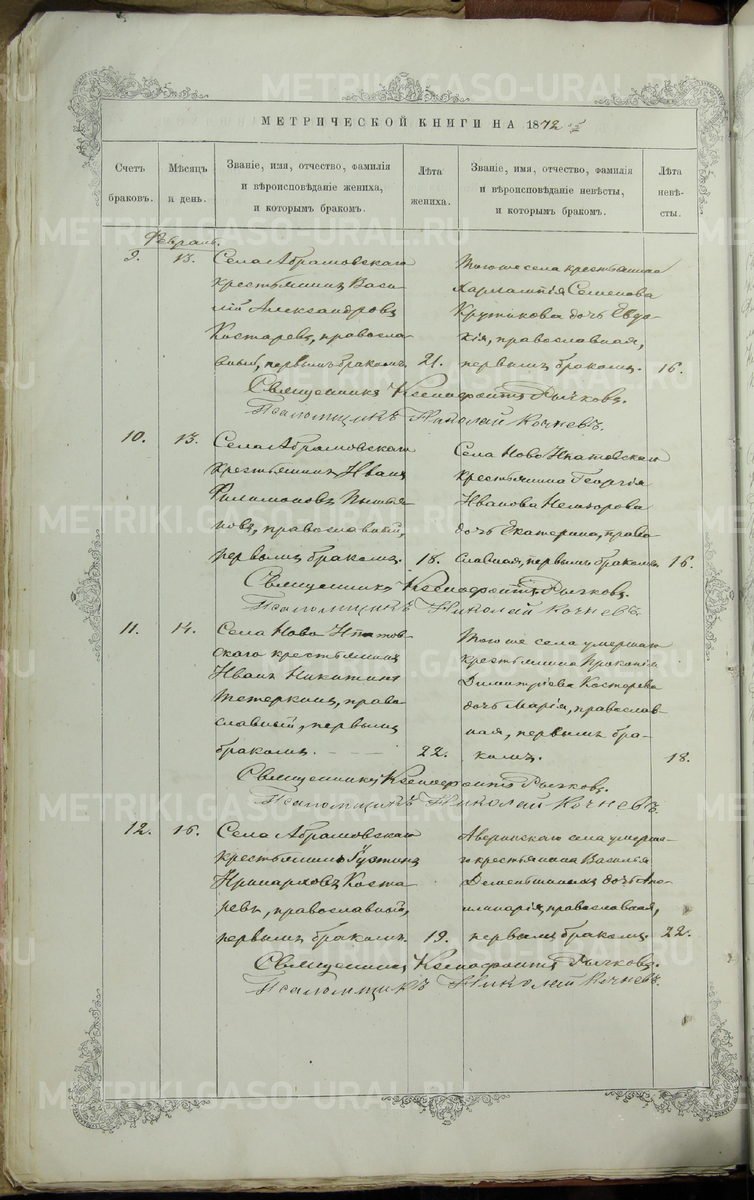 МЕТРИЧЕСКОЙ КНИГИ НА 1872 г
Счетъ браковъ.
Мѣсяцъ и день.
Званіе, имя, отчество, фамилія
и вѣроисповѣданіе жениха,
и которымъ бракомъ.
Лѣта жениха.
Званіе, имя, отчество, фамилія
и вѣроисповѣданіе невѣсты,
и которымъ бракомъ.
Лѣта невѣ-
сты.
Февраль.
9. 13.
Села Абрамовскаго
крестьянинъ Васи-
лій Александровъ
Костаревъ, правосла-
вный, первымъ бракомъ. 21.
Того же села крестьянина
Харлампія Семенова
Крутикова дочь Евдо-
кія, православная,
первымъ бракомъ. 16.
Священникъ Ксенофонтъ Рычковъ.
Псаломщикъ Николай Кочневъ.
10. 13.
Села Абрамовскаго
крестьянинъ Иванъ
Филимоновъ
православный,
первымъ бракомъ. 18.
Села Ново Ипатовскаго
крестьянина Георгія
Иванова
дочь Екатерина, право-
славная, первымъ бракомъ. 16.
Священникъ Ксенофонтъ Рычковъ.
Псаломщикъ Николай Кочневъ.
11. 14.
Села Ново Ипатов-
скаго крестьянинъ
Иванъ Никитинъ
Тетеркинъ, право-
славный, первымъ
бракомъ. 22.
Того же села умершаго
крестьянина Прокопія
Димитріева Костарева
дочь Марія, православ-
ная, первымъ бра-
комъ. 18.
Священникъ Ксенофонтъ Рычковъ.
Псаломщикъ Николай Кочневъ.
12. 16.
Села Абрамовскаго
крестьянинъ Іустинъ
Иринарховъ Коста-
ревъ, православный,
первымъ бракомъ. 19.
Аверинскаго села умерша-
го крестьянина Василья
дочь Апо-
линарія, православная,
первымъ бракомъ. 22.
Священникъ Ксенофонтъ Рычковъ.
Псаломщикъ Николай Кочневъ.
METRIKI.GASO-URAL.RU